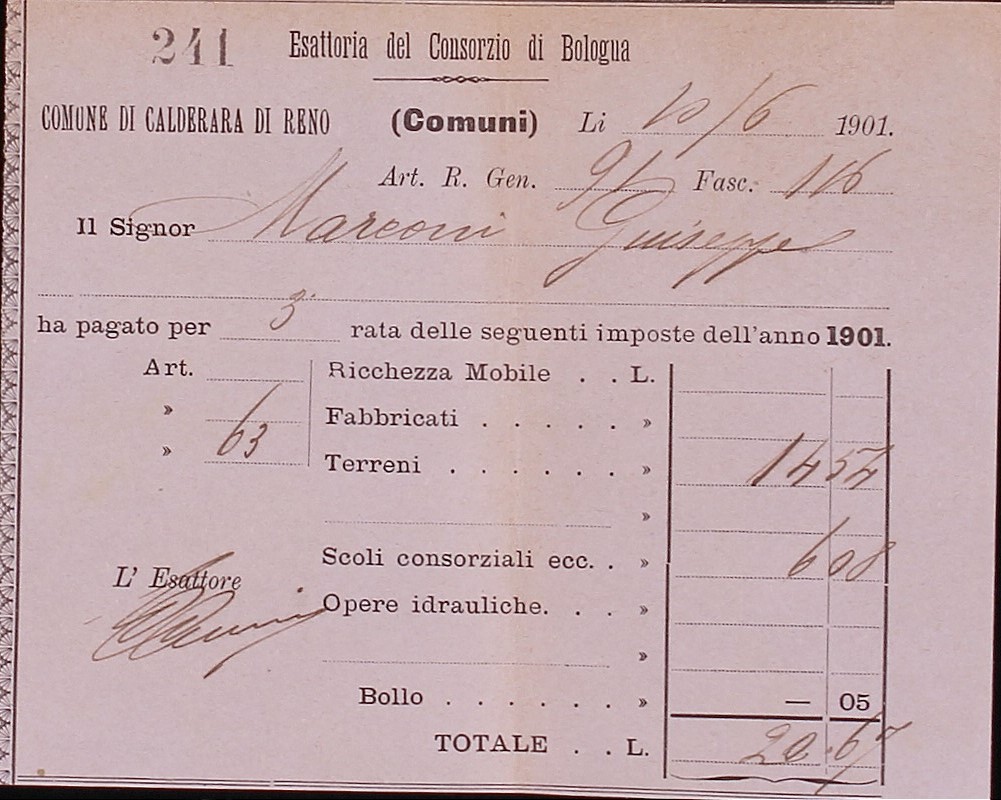 241 Esattoria del Consorzio di Bologna
COMUNE DI CALDERARA DI RENO (Comuni) Li 10/6 1901.
Art. R. Gen. Fasc. 116
Il Signor Marconi Giuseppe
ha pagato per 3ª rata delle seguenti imposte dell'anno 1901.
Art. Ricchezza Mobile . . L.
» Fabbricati . . . . . »
» 63 Terreni . . . . . . » 14 54
»
Scoli consorziali ecc. . » 6 08
L' Esattore
Opere idrauliche. . . »
»
Bollo . . . . . . » — 05
TOTALE . . L. 20.67